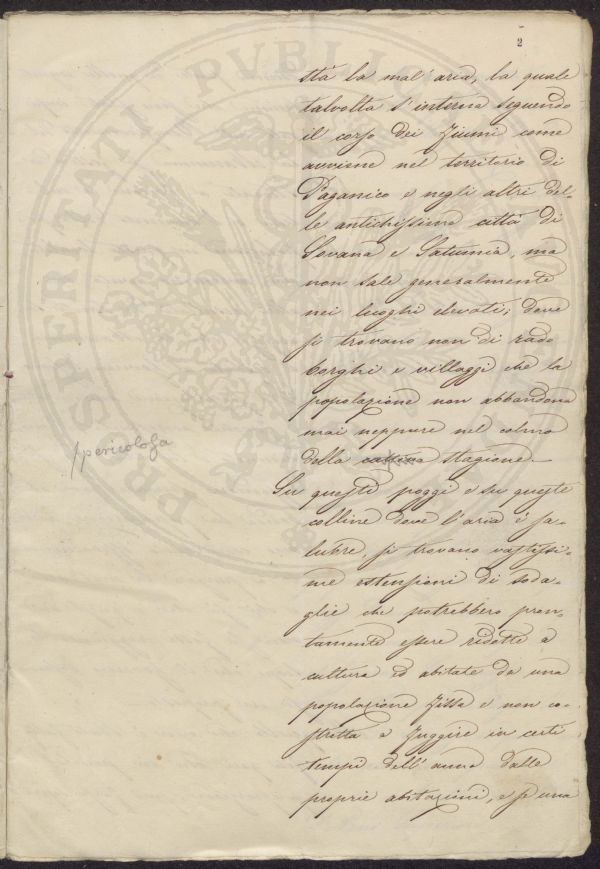 2
stà la mal'aria, la quale
talvolta s'interna seguendo
il corso dei fiumi come
avviene nel territorio di
Paganico e negli altri del-
le antichissime città di
Sovana e Saturnia, ma
non sale generalmente
nei luoghi elevati; dove
si trovano non di rado
borghi e villaggi che la
popolazione non abbandona
mai neppure nel colmo
della cattiva stagione.—
/pericolosa
Su questi poggi e su queste
colline dove l'aria è sa-
lubre, si trovano vastissi-
me estensioni di soda-
glie che potrebbero pron-
tamente essere ridotte a
cultura ed abitate da una
popolazione fissa e non co-
stretta a fuggire in certi
tempi dell'anno dalle
proprie abitazioni, e se una
PROSPERITATI PVBLICAE